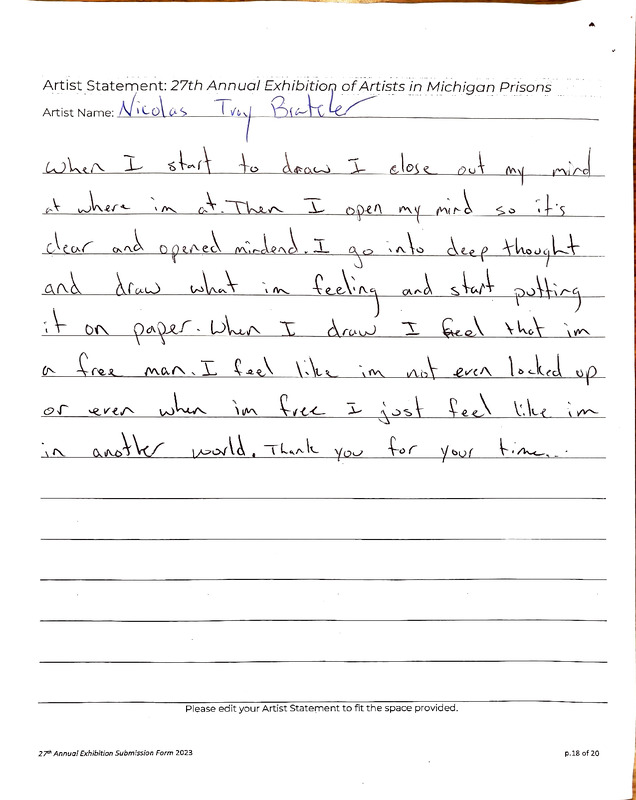 Artist Statement: 27th Annual Exhibition of Artists in Michigan Prisons
Artist Name: Nicolas Troy Bratcher
When I start to draw I close out my mind
at where im at. Then I open my mind so it's
clear and opened mindend. I go into deep thought
and draw what im feeling and start putting
it on paper. When I draw I feel that im
a free man. I feel like im not even locked up
or even when im free I just feel like im
in another world. Thank you for your time...
Please edit your Artist Statement to fit the space provided.
27th Annual Exhibition Submission Form 2023
p.18 of 20